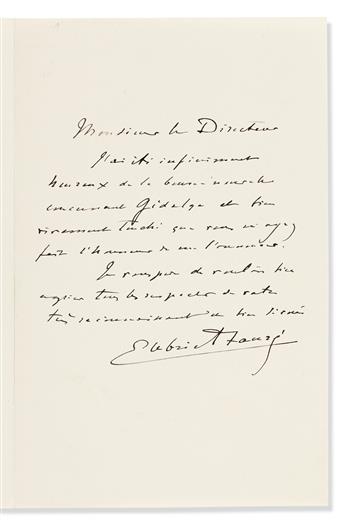 Monsieur le Directeur
J'ai été infiniment
heureux de la bonne nouvelle
concernant Gidalge et bien
vivement touché que vous m'ayez
fait l'honneur de me l'annoncer.
Je vous prie de vouloir bien
agréer tous les respects de votre
très reconnaissant et bien dévoué
Gabriel Fauré